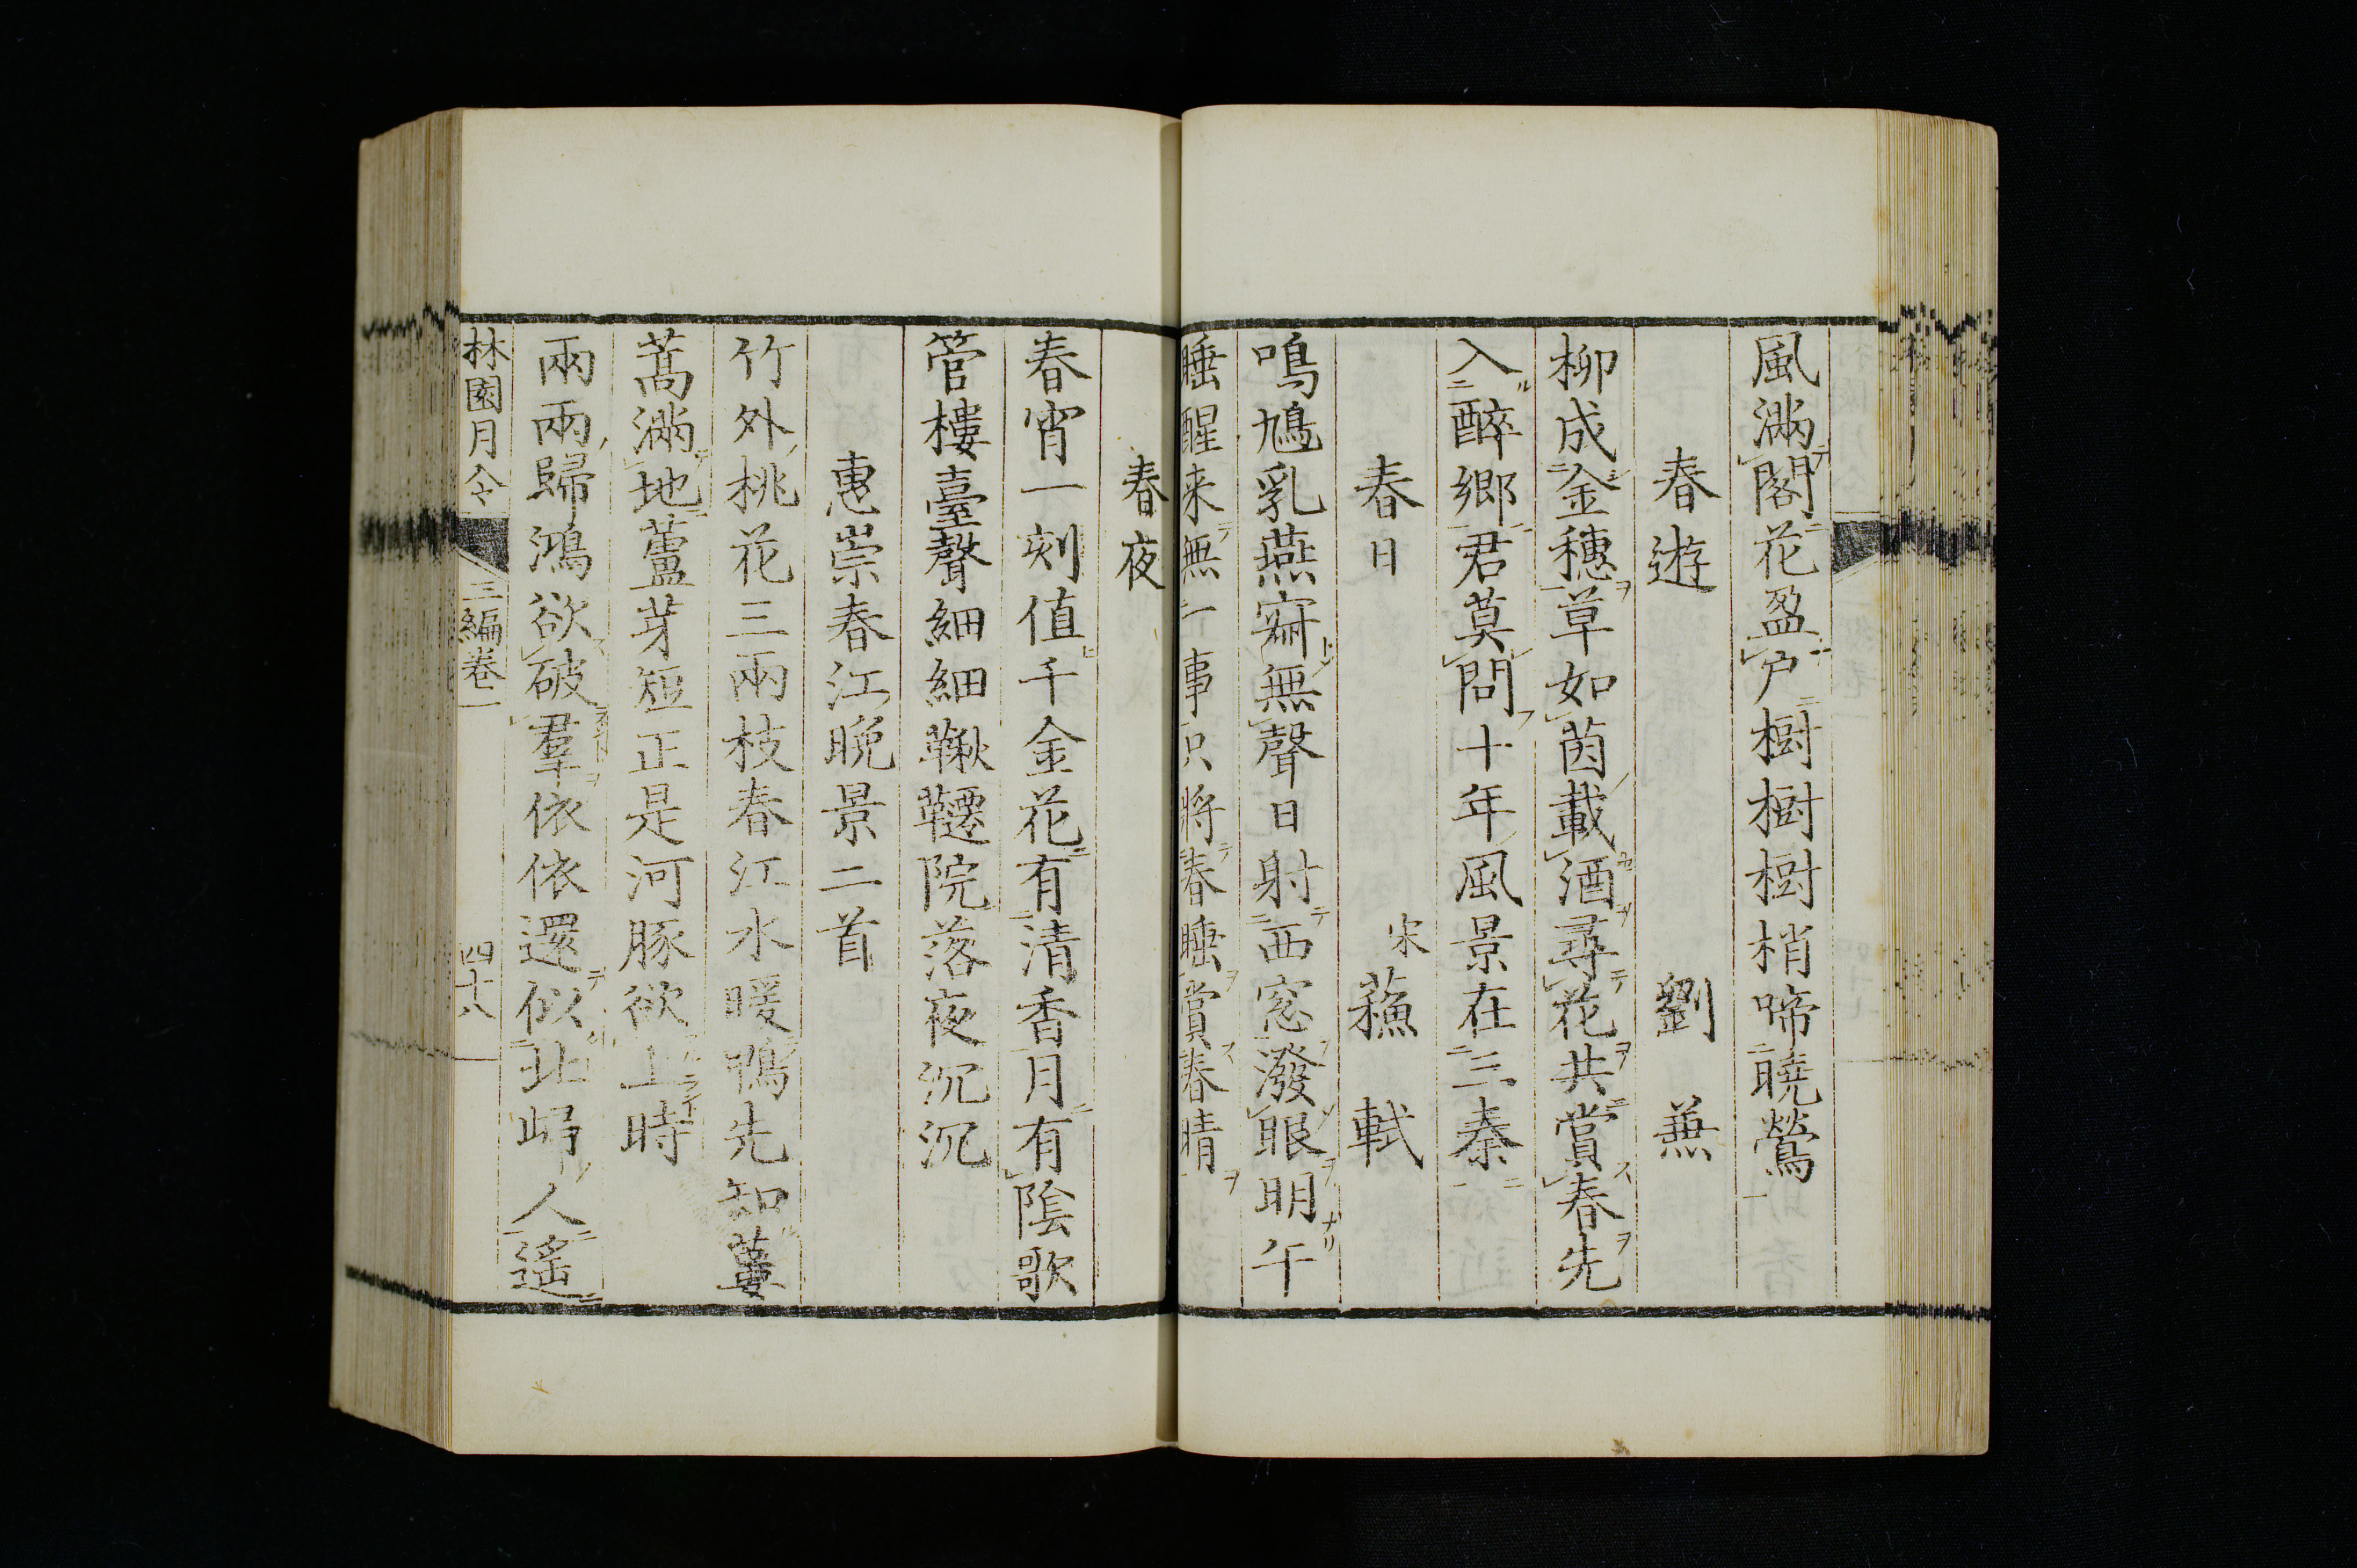 風滿閣花盈户樹樹樹梢啼曉鶯
春遊　劉兼
柳成金穗草如茵載酒尋花共賞春先
入醉郷君莫問十年風景在三秦
春日　宋蘓軾
鳴鳩乳燕寂無聲日射西窓潑眼明午
睡醒来無一事只將春睡賞春晴
春夜
春宵一刻值千金花有清香月有陰歌
管樓臺聲細細鞦韆院落夜沉沉
惠崇春江晚景二首
竹外桃花三兩枝春江水暖鴨先知蔞
蒿滿地蘆芽短正是河豚欲上時
兩兩歸鴻欲破羣依依還似北歸人遙
林園月令　三編卷一　四十八